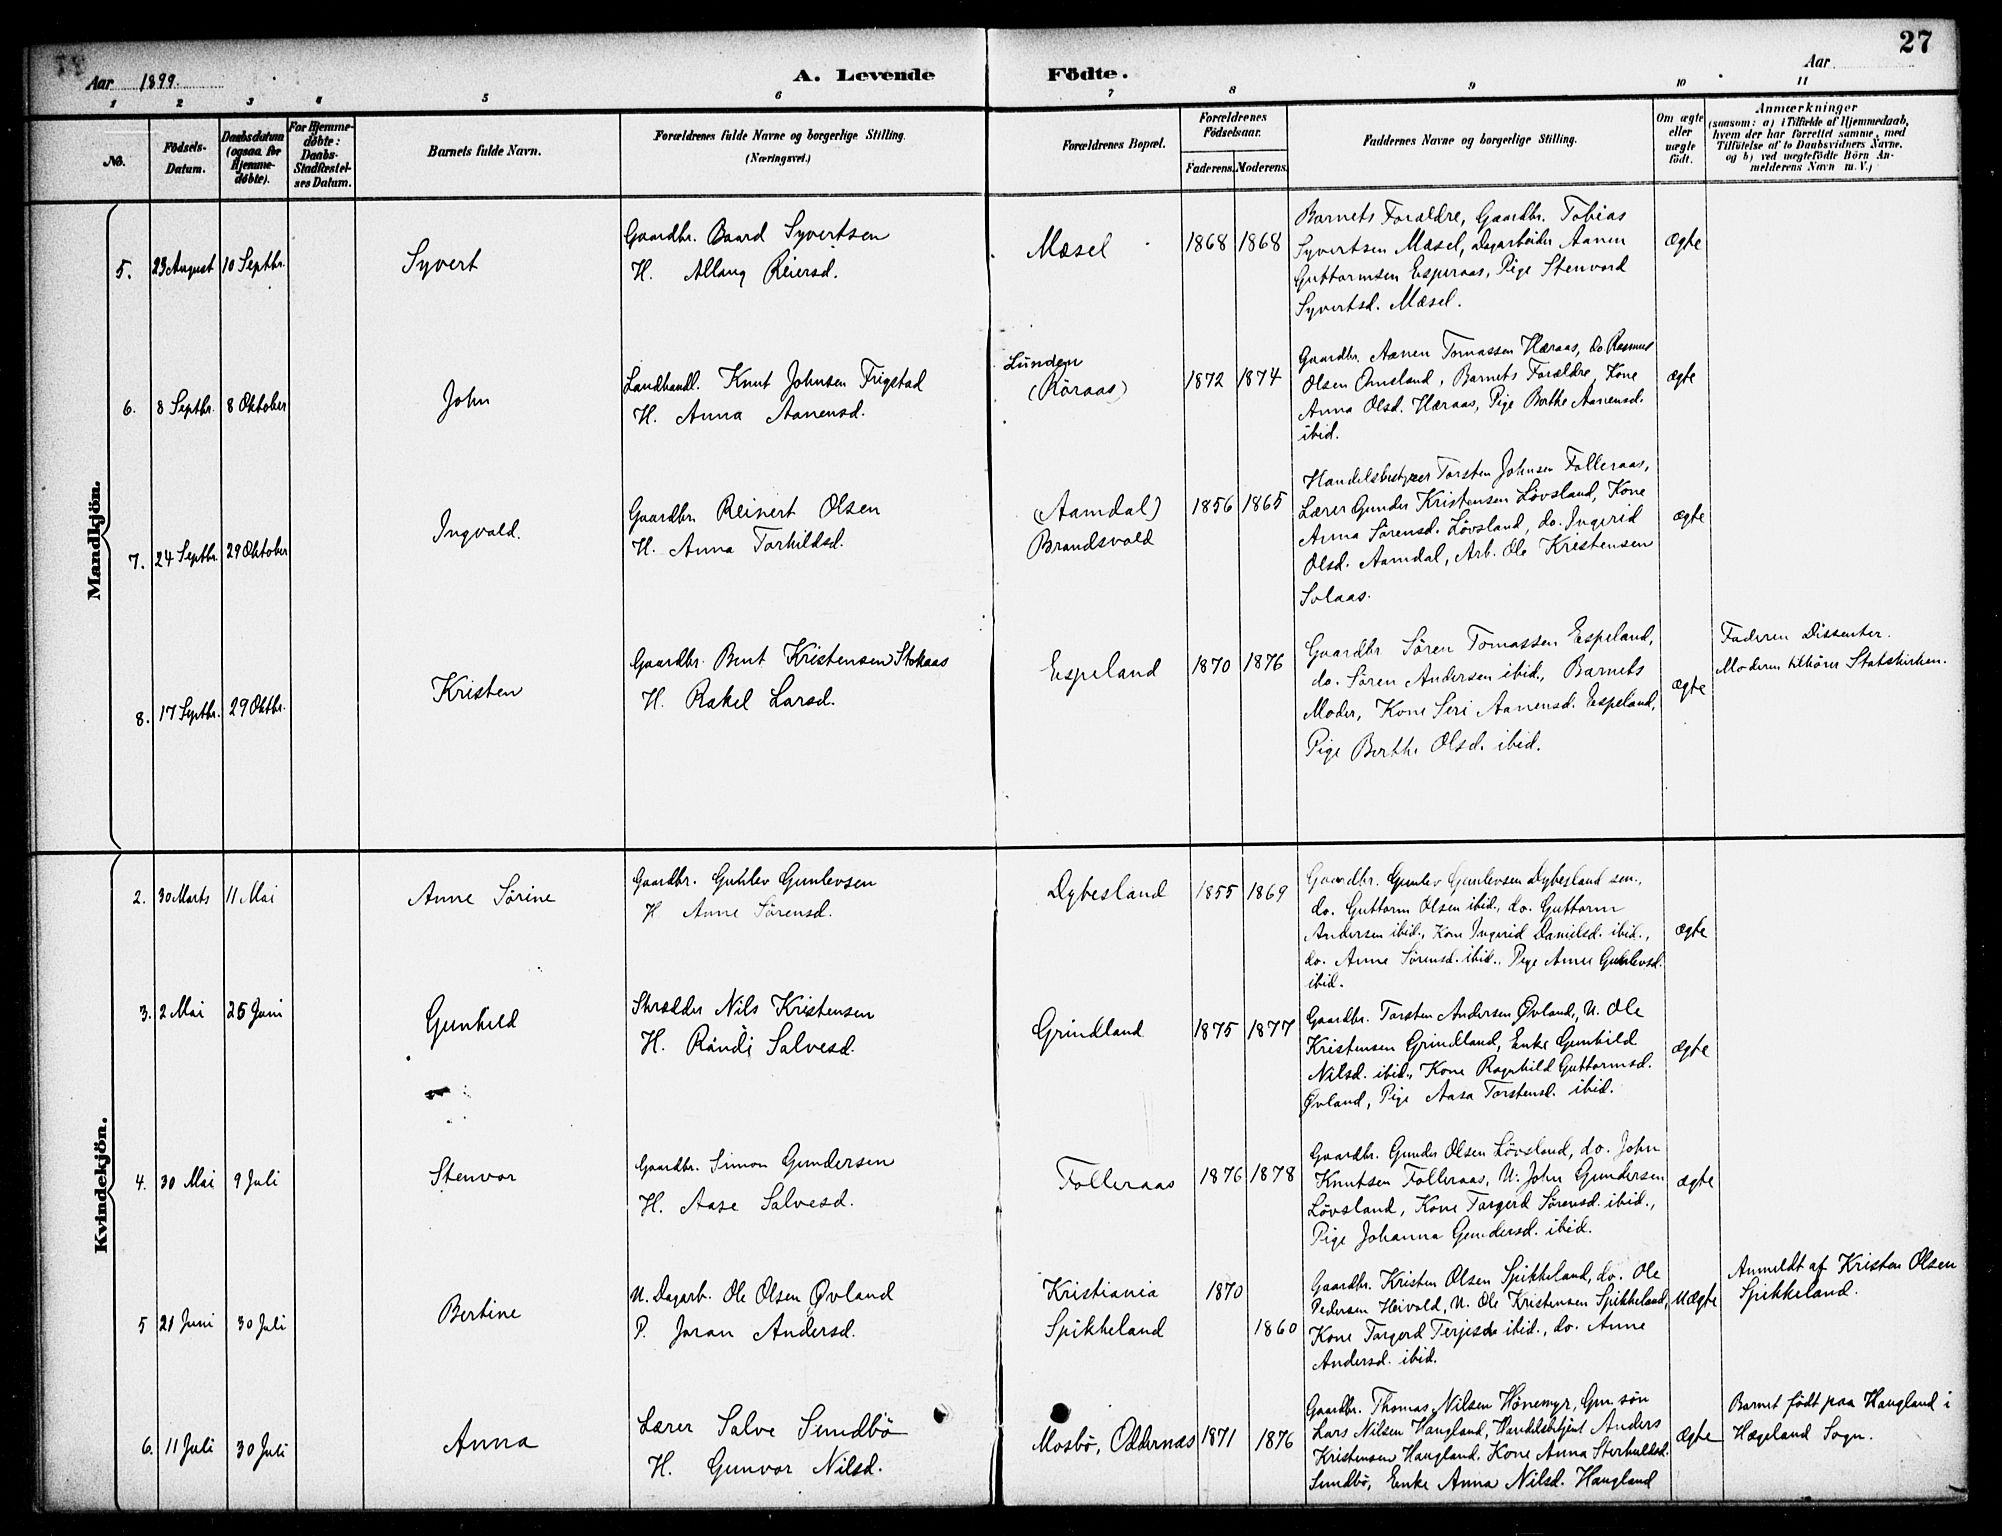 27
Aar 1899.
A. Levende Födte.
Aar
1 2 3 4 5 6 7 8 9 10 11
No.
Födsels-Datum.
Daabsdatum (ogsaa for Hjemmedöbte).
For Hjemmedöbte: Daabs-Stadfæstelses Datum.
Barnets fulde Navn.
Forældrenes fulde Navne og borgerlige Stilling.
(Næringsvei.)
Forældrenes Bopæl.
Forældrenes Födselsaar.
Faderens. Moderens.
Faddernes Navne og borgerlige Stilling.
Om ægte eller uægte födt.
Anmærkninger
(saasom: a) i Tilfælde af Hjemmedaab,
hvem der har forrettet samme, med
Tilföielse af to Daabsvidners Navne,
og b) ved uægtefödte Börn Anmelderens Navn m. V.)
Mandkjön.
5. 23 August 10 Septbr. Syvert
Gaardbr. Baard Syvertsen
H. Allaug Reiersd.
Mæsel 1868 1868
Barnets Forældre, Gaardbr. Tobias
Syvertsen Mæsel, Dagarbeider Aanen
Guttormsen Esperaas, Pige Stenvord
Syvertsd. Mæsel.
Ægte
6. 8 Septbr. 8 Oktober John
Landhandl. Knut Johnsen Frigstad
H. Anna Aanensd.
Lunden
(Röraas) 1872 1874
Gaardbr. Aanen Tomassen Hæraas, do. Rasmus
Olsen Omsland, Barnets Forældre, Kone
Anna Olsd. Hæraas, Pige Berthe Aanensd.
ibid.
ægte
7. 24 Septbr. 29 Oktober Ingvald.
Gaardbr. Reinert Olsen
H. Anna Torkildsd.
(Aamdal)
Brandsvold 1856 1865
Handelsbestyrer Torsten Johnsen Folleraas,
Lærer Gunder Kristensen Lövsland, Kone
Anna Sörensd. Lövsland, do. Ingerid
Olsd. Aamdal, Arb. Ole Kristensen
Solaas.
ægte
8. 17 Septbr. 29 Oktbr. Kristen
Gaardbr. Bent Kristensen Stokaas
H. Rakel Larsd.
Espeland 1870 1876
Gaardbr Sören Tomassen Espeland,
do. Sören Andersen ibid., Barnets
Moder, Kone Seri Aanensd. Espeland,
Pige Berthe Olsd. ibid.
ægte
Faderen Dissenter.
Moderen tilhører Statskirken.
Kvindekjön.
2. 30 Marts 11 Mai Anne Sørine
Gaardbr. Gunlev Gunlevsen
H. Anne Sørensd.
Dybesland 1855 1869
Gaardbr. Gunlev Gunlevsen Dybesland sen.,
do. Guttorm Olsen ibid., do. Guttorm
Andersen ibid., Kone Ingerid Danielsd. ibid.,
do. Anne Sørensd. ibid., Pige Anne Gunlevsd.
ibid.
ægte
3. 2 Mai 25 Juni Gunhild
Skrædder Nils Kristensen
H. Rändi Salvesd.
Grindland 1875 1877
Gaardbr. Torsten Andersen Øvland, U. Ole
Kristensen Grindland, Enke Gunhild
Nilsd. ibid., Kone Ragnhild Guttormsd.
Øvland, Pige Aasa Torstensd. ibid.
ægte
4. 30 Mai 9 Juli Stenvor
Gaardbr. Simon Gundersen
H. Aase Salvesd.
Folleraas 1876 1878
Gaardbr. Gunder Olsen Lövsland, do. John
Knutsen Folleraas, U. John Gundersen
Lövsland, Kone Torgerd Sørensd. ibid.,
Pige Johanna Gundersd. ibid.
ægte
5 21 Juni 30 Juli Bertine
U. Dagarb. Ole Olsen Øvland
P. Joran Andersd.
Kristiania 1870
Spikkeland 1860
Gaardbr. Kristen Olsen Spikkeland, do. Ole
Pedersen Heivold, U. Ole Kristensen Spikkeland,
Kone Torgerd Terjesd. ibid., do. Anne
Andersd. ibid.
Uægte
Anmeldt af Kristen Olsen
Spikkeland.
6. 11 Juli 30 Juli Anna
Lærer Salve Sundbö
H. Gunvor Nilsd.
Mosbö, Oddernæs 1871 1876
Gaardbr. Thomas Nilsen Hönemyr, Gm. søn
Lars Nilsen Haugland, Handelsbetjent Anders
Kristensen Haugland, Kone Anna
Sundbø, Enke Anna Nilsd. Haugland
Ægte
Barnet født paa Haugland i
Hægeland Sogn.